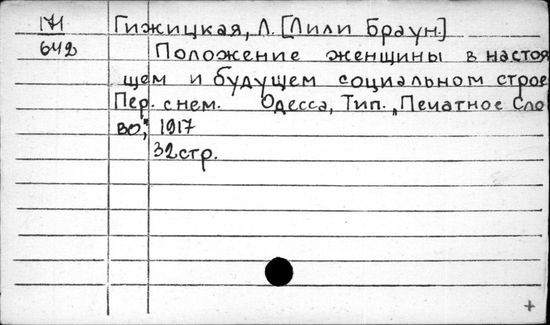 171 Гижицкая, Л. [Лили Браун.]
642 Положение женщины в настоя
щем и будущем социальном строе
Пер. с нем. Одесса, Тип. „Печатное Сло
во", 1917
32 стр.
+